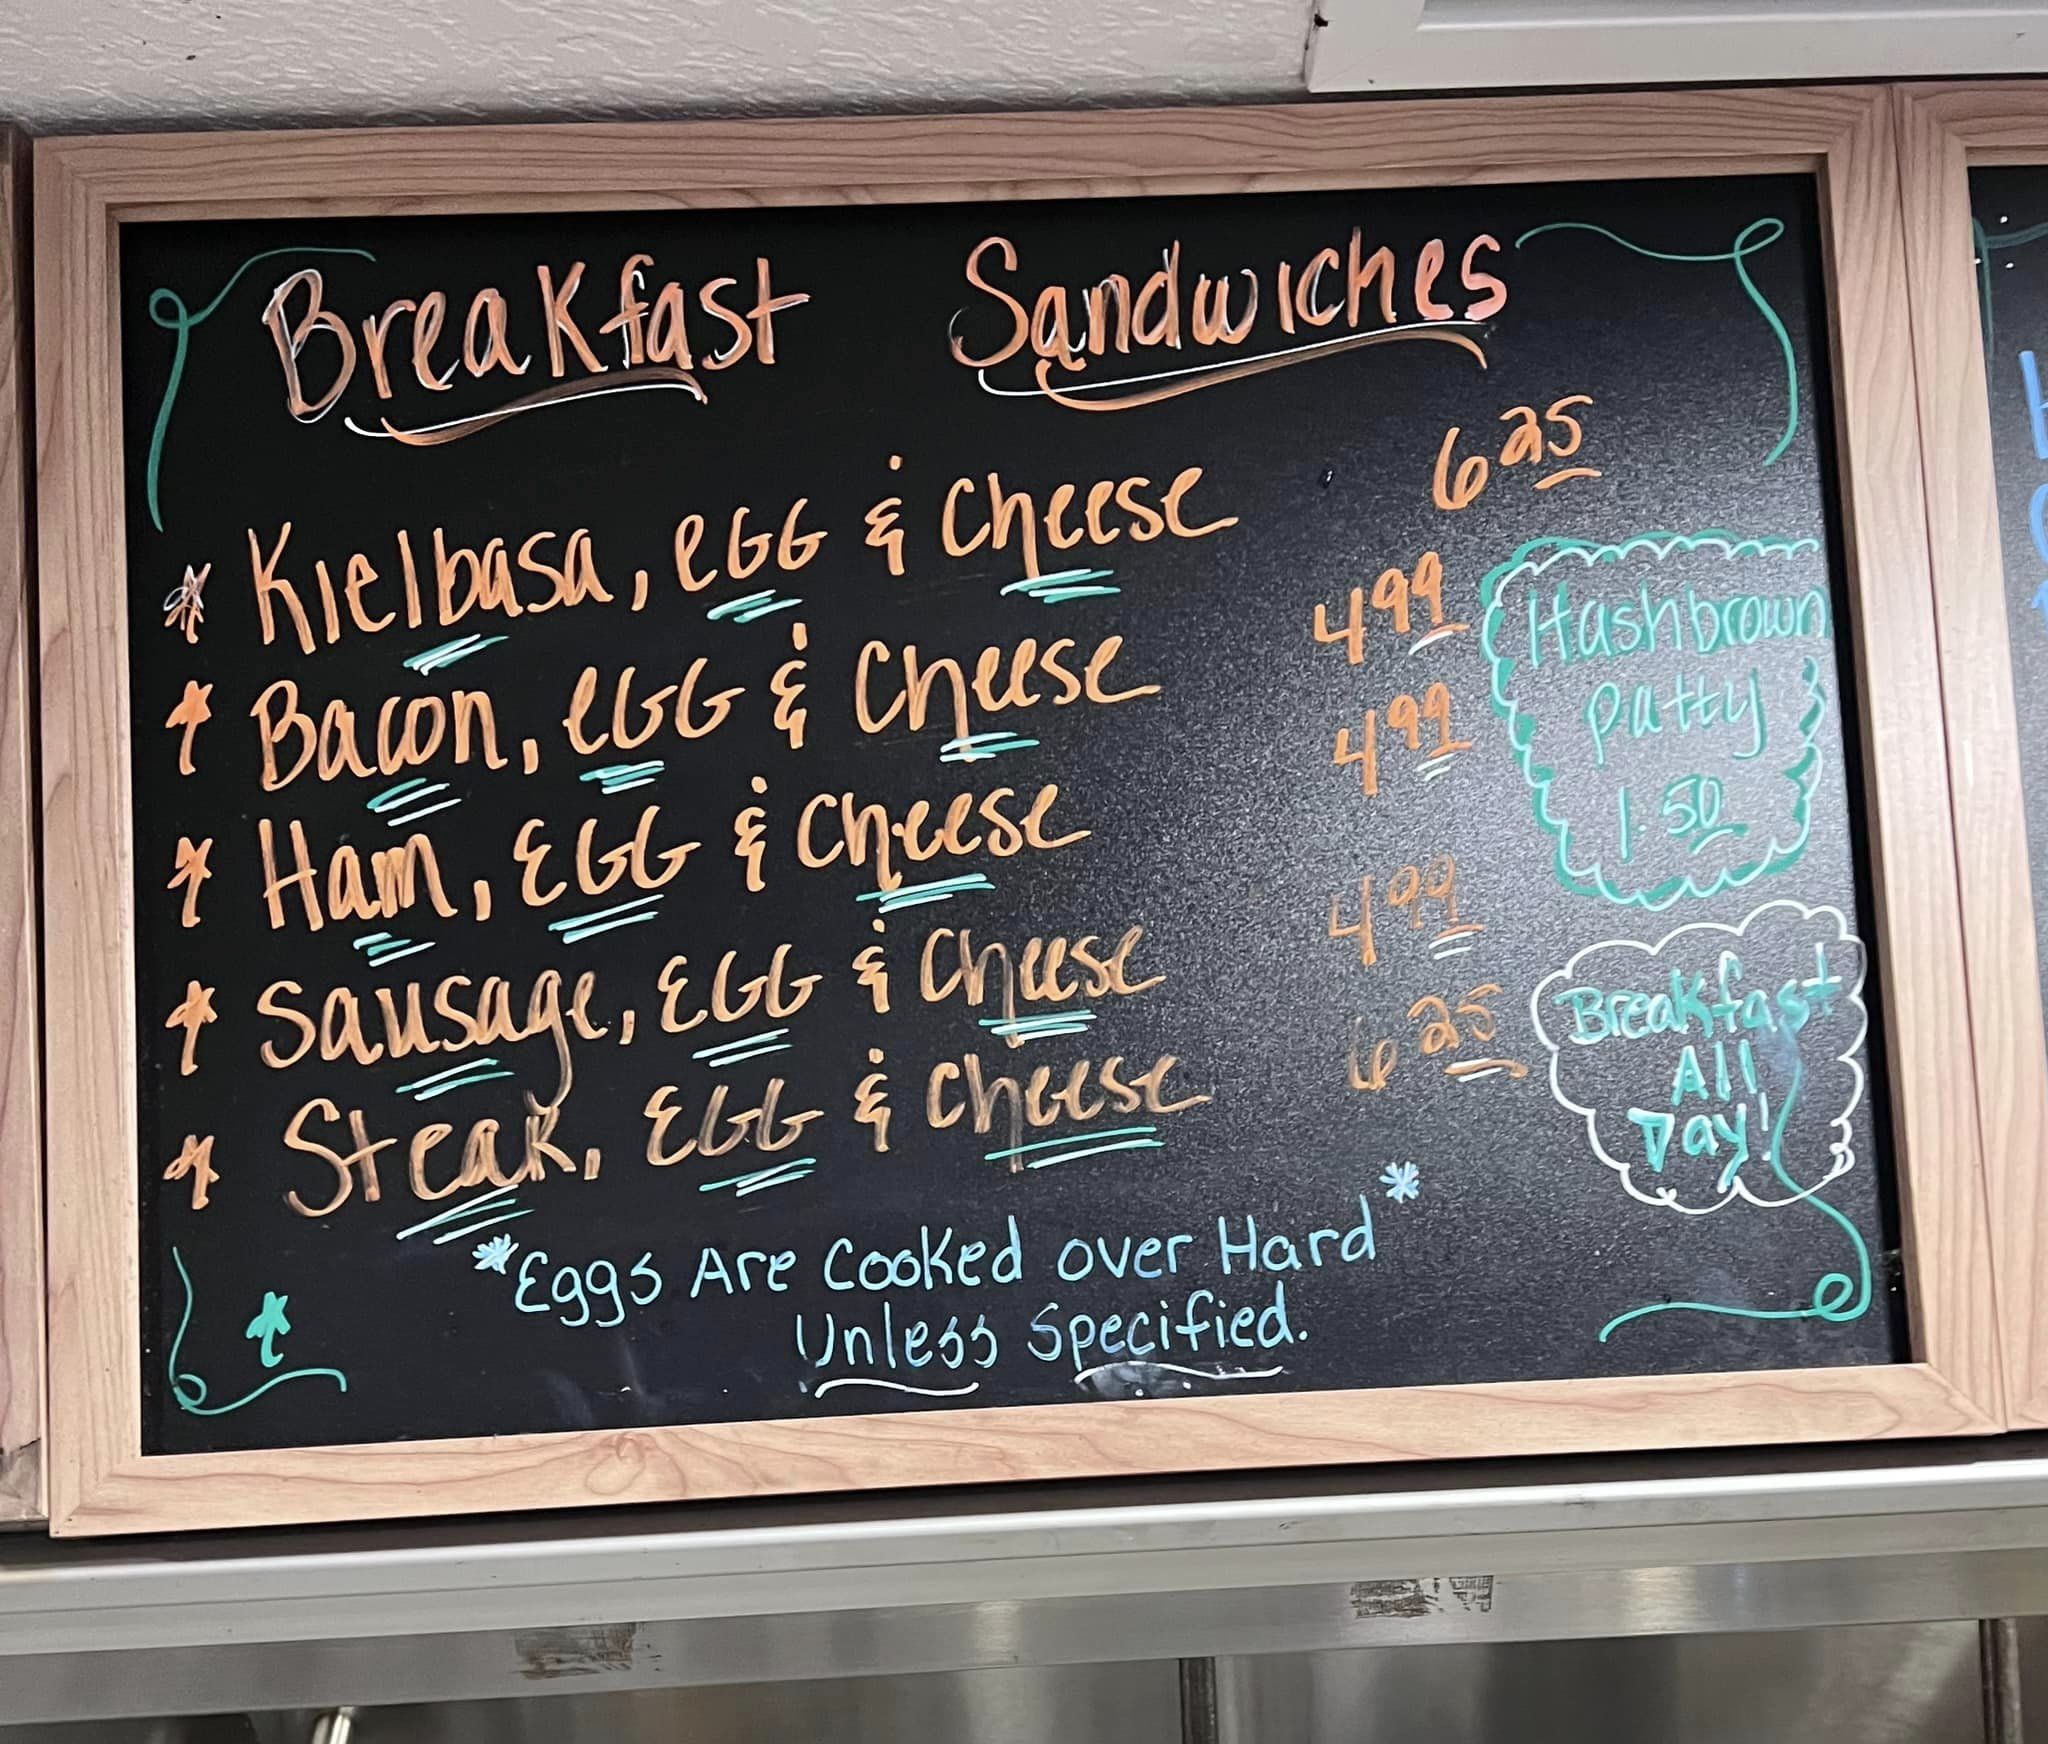 Breakfast Sandwiches
* Kielbasa, EGG & Cheese 6 25
* Bacon, EGG & Cheese 4 99
* Ham, EGG & Cheese 4 99
* Sausage, EGG & Cheese 4 99
* Steak, EGG & Cheese 6 25
Hashbrown
patty
1.50
Breakfast
All
Day!
*Eggs Are Cooked over Hard*
Unless Specified.